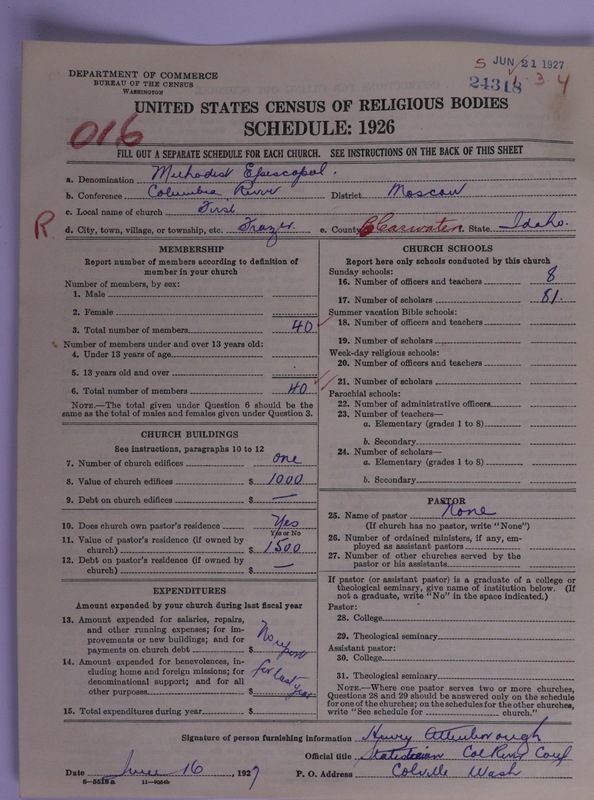 5 JUN 21 1927
24318 1. 3. 4
DEPARTMENT OF COMMERCE
BUREAU OF THE CENSUS
WASHINGTON
UNITED STATES CENSUS OF RELIGIOUS BODIES
SCHEDULE: 1926
016
FILL OUT A SEPARATE SCHEDULE FOR EACH CHURCH. SEE INSTRUCTIONS ON THE BACK OF THIS SHEET
a. Denomination Methodist Episcopal.
b. Conference Columbia River District Moscow
c. Local name of church First
R. d. City, town, village, or township, etc. Frazer. e. County Clearwater. State Idaho.
MEMBERSHIP
Report number of members according to definition of
member in your church
Number of members, by sex:
1. Male
2. Female
3. Total number of members 40 ✓
Number of members under and over 13 years old:
4. Under 13 years of age
5. 13 years old and over
6. Total number of members 40 ✓
NOTE.—The total given under Question 6 should be the
same as the total of males and females given under Question 3.
CHURCH BUILDINGS
See instructions, paragraphs 10 to 12
7. Number of church edifices one
8. Value of church edifices $ 1000
9. Debt on church edifices $ —
10. Does church own pastor's residence Yes
Yes or No
11. Value of pastor's residence (if owned by
church) $ 1500
12. Debt on pastor's residence (if owned by
church) $ —
EXPENDITURES
Amount expended by your church during last fiscal year
13. Amount expended for salaries, repairs,
and other running expenses; for im-
provements or new buildings; and for
payments on church debt $ No report
14. Amount expended for benevolences, in-
cluding home and foreign missions; for
denominational support; and for all
other purposes $ for last year
15. Total expenditures during year $
CHURCH SCHOOLS
Report here only schools conducted by this church
Sunday schools:
16. Number of officers and teachers 8
17. Number of scholars 81.
Summer vacation Bible schools:
18. Number of officers and teachers
19. Number of scholars
Week-day religious schools:
20. Number of officers and teachers
21. Number of scholars
Parochial schools:
22. Number of administrative officers
23. Number of teachers—
a. Elementary (grades 1 to 8)
b. Secondary
24. Number of scholars—
a. Elementary (grades 1 to 8)
b. Secondary
PASTOR
25. Name of pastor None
(If church has no pastor, write "None")
26. Number of ordained ministers, if any, em-
ployed as assistant pastors
27. Number of other churches served by the
pastor or his assistants
If pastor (or assistant pastor) is a graduate of a college or
theological seminary, give name of institution below. (If
not a graduate, write "No" in the space indicated.)
Pastor:
28. College
29. Theological seminary
Assistant pastor:
30. College
31. Theological seminary
NOTE.—Where one pastor serves two or more churches,
Questions 28 and 29 should be answered only on the schedule
for one of the churches; on the schedules for the other churches,
write "See schedule for church."
Signature of person furnishing information Henry Attenborough
Official title Statistician Col River Conf
Date June 16, 1927 P. O. Address Colville Wash